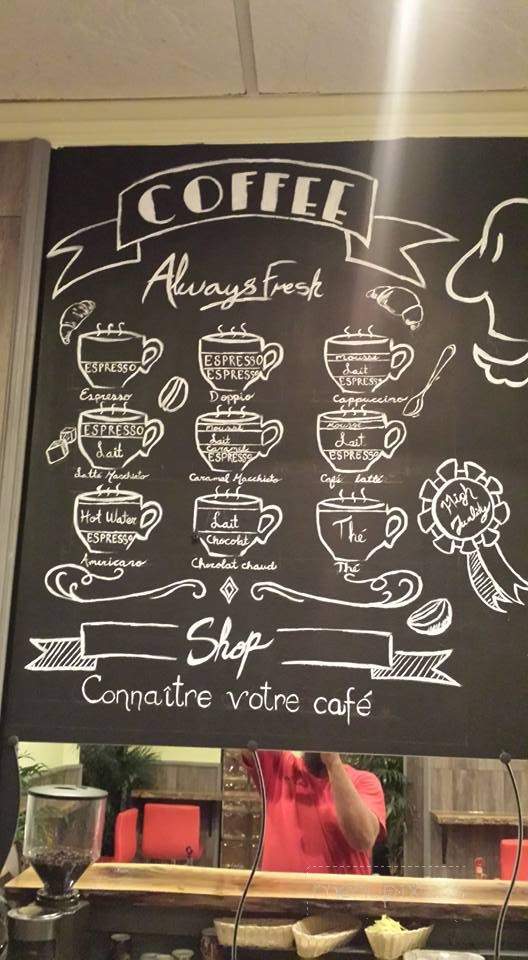 COFFEE
Always Fresh
ESPRESSO
Espresso
ESPRESSO
ESPRESSO
Doppio
mousse
Lait
ESPRESSO
Cappuccino
ESPRESSO
Lait
Latté Macchiato
mousse
Lait
Caramel
ESPRESSO
Caramel Macchiato
mousse
Lait
ESPRESSO
Café latté
Hot Water
ESPRESSO
Americano
Lait
Chocolat
Chocolat chaud
Thé
Thé
High
Quality
Shop
Connaître votre café